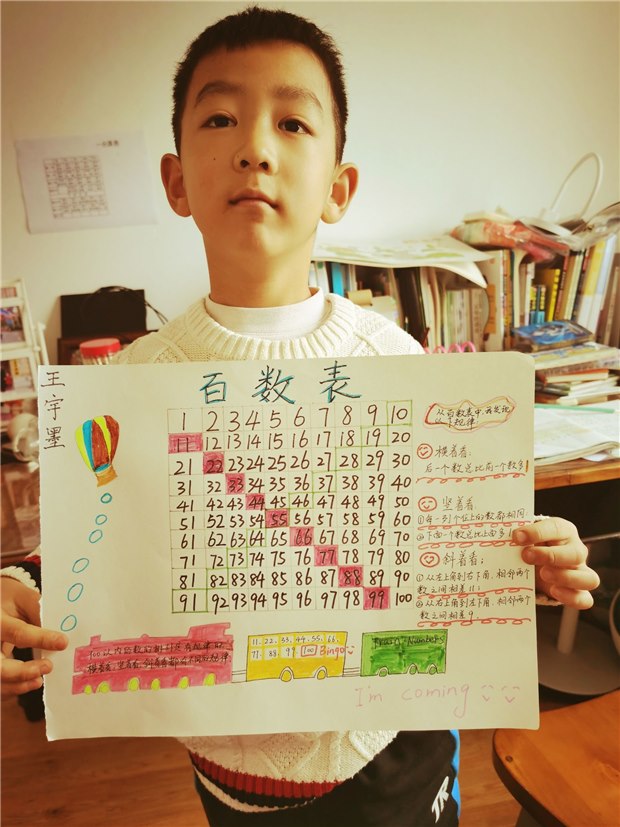 百数表
王宇墨
1 2 3 4 5 6 7 8 9 10
11 12 13 14 15 16 17 18 19 20
21 22 23 24 25 26 27 28 29 30
31 32 33 34 35 36 37 38 39 40
41 42 43 44 45 46 47 48 49 50
51 52 53 54 55 56 57 58 59 60
61 62 63 64 65 66 67 68 69 70
71 72 73 74 75 76 77 78 79 80
81 82 83 84 85 86 87 88 89 90
91 92 93 94 95 96 97 98 99 100
从百数表中我发现
以下规律:
横着看:
后一个数总比前一个数多1
竖着看
①每一列个位上的数都相同
②下面一个数总比上面多1
斜着看:
①从左上角到右下角,相邻两个
数之间相差11;
②从右上角到左下角,相邻两个
数之间相差9
100以内的数的排列是有规律的
横着看,竖着看,斜着看都有不同的规律
11、22、33、44、55、66、
77、88、99、100 Bingo
Numbers
I'm coming